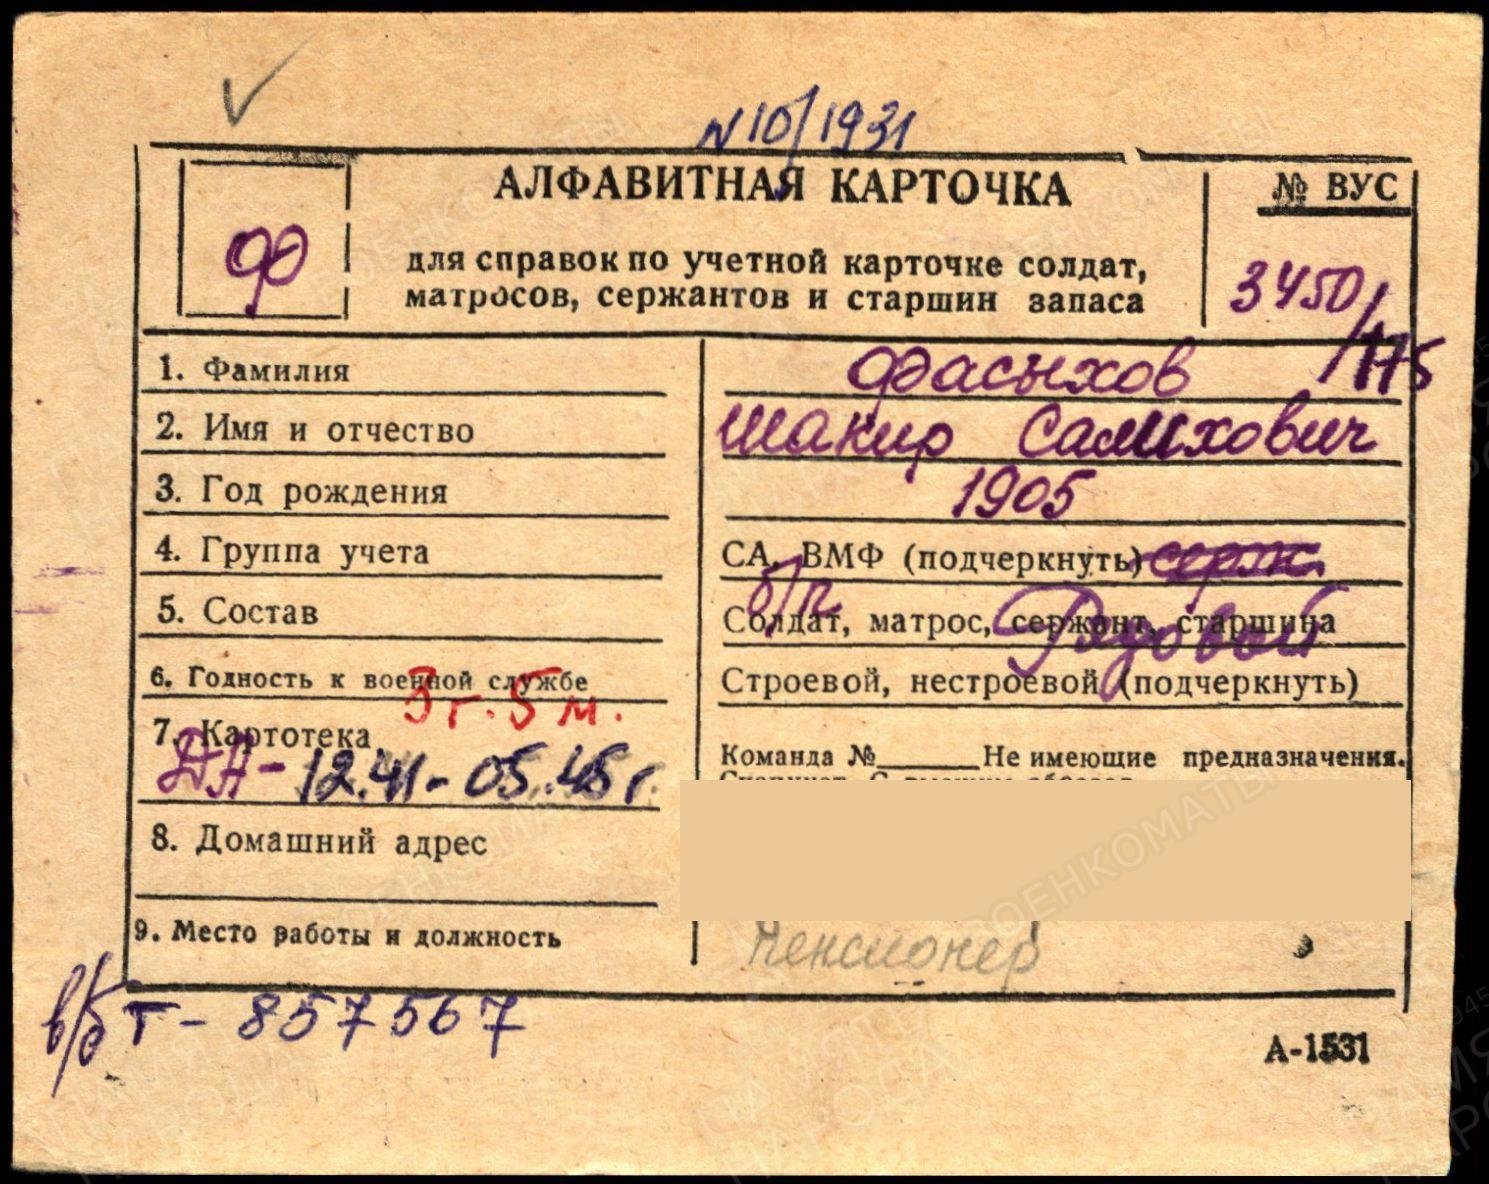 N 10/1931
АЛФАВИТНАЯ КАРТОЧКА
№ ВУС
Ф
для справок по учетной карточке солдат,
матросов, сержантов и старшин запаса
3450/175
1. Фамилия
Фасыхов
2. Имя и отчество
Шакир Салихович
3. Год рождения
1905
4. Группа учета
СА, ВМФ (подчеркнуть) серж
б/п
5. Состав
Солдат, матрос, сержант, старшина
Рядовой
6. Годность к военной службе
Строевой, нестроевой (подчеркнуть)
3 г. 5 м.
7. Картотека
ДА - 12.41 - 05.45 г.
Команда №______ Не имеющие предназначения.
8. Домашний адрес
9. Место работы и должность
Пенсионер
в/б Т - 857567
А-1531